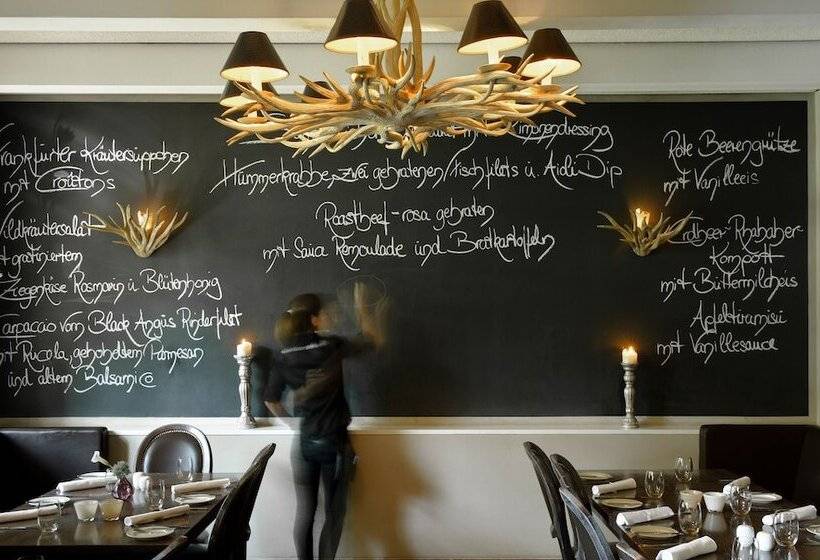 Frankfurter Kräutersüppchen
mit Croutons
Wildkräutersalat
mit gratiniertem
Ziegenkäse Rosmarin u. Blütenhonig
Carpaccio vom Black Angus Rinderfilet
mit Rucola, gehobeltem Parmesan
und altem Balsamico
mit Limonendressing
Hummerkrabbe, zwei gebratenen Fischfilets u. Aioli Dip
Roastbeef - rosa gebraten
mit Remoulade und Bratkartoffeln
Rote Beerengrütze
mit Vanilleeis
Erdbeer-Rhababer-
Kompott
mit Buttermilcheis
Apfeltiramisu
mit Vanillesauce